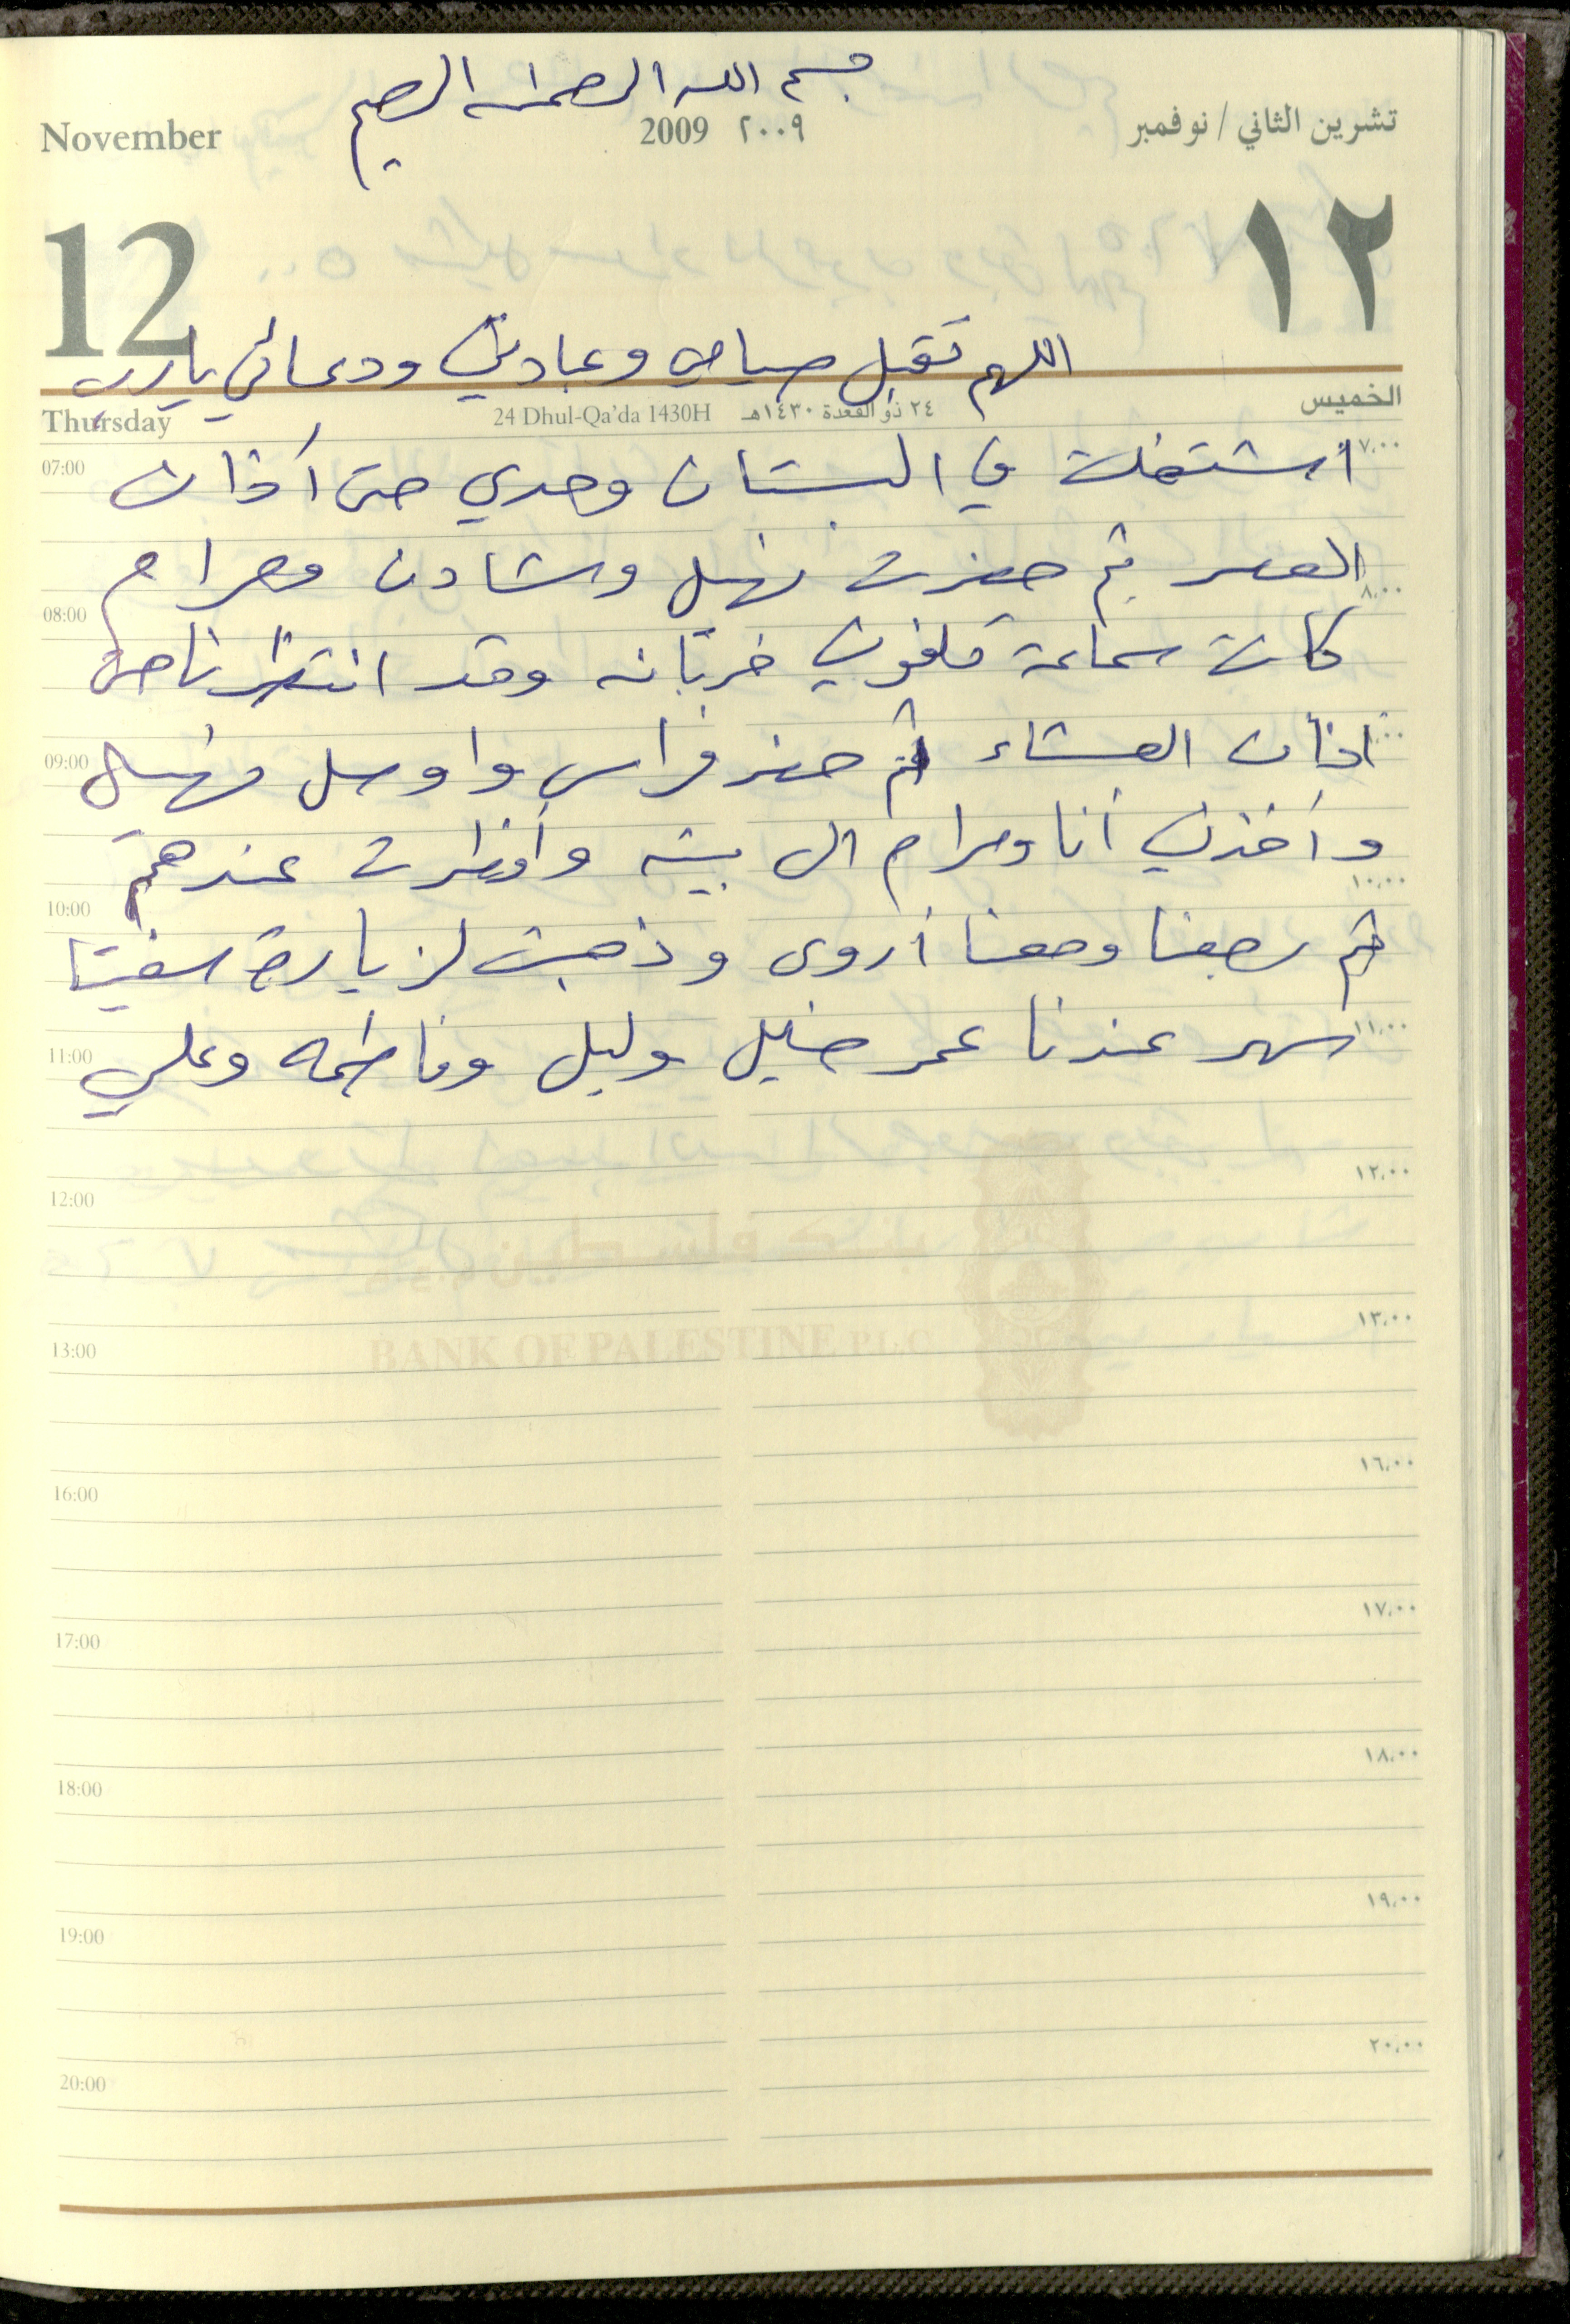 بسم الله الرحمن الرحيم
November 2009 ٢٠٠٩ تشرين الثاني / نوفمبر
12 ١٢
اللهم تقبل صيامي وعبادتي ودعائي يارب
Thursday 24 Dhul-Qa'da 1430H ٢٤ ذو القعدة ١٤٣٠هـ الخميس
اشتغلت في البستان وحدي حتى أذان
07:00 ٧,٠٠
العصر ثم حضرت نهيل وشادن ومرام
08:00 ٨,٠٠
كانت سماعة تلفوني خربانه وقد انتظرنا حتى
اذان العشاء ثم حضر فراس واوصل نهيل
09:00
وأخذني أنا ومرام الى بيته وأفطرت عندهم
10:00 ١٠,٠٠
ثم رجعنا ومعنا أروى وذهبت لزيارة
سهر عندنا عمر خليل وليلى وفاطمه وعلي
11:00 ١١,٠٠
12:00 ١٢,٠٠
بنك فلسطين
13:00 ١٣,٠٠
BANK OF PALESTINE P.L.C
16:00 ١٦,٠٠
17:00 ١٧,٠٠
18:00 ١٨,٠٠
19:00 ١٩,٠٠
20:00 ٢٠,٠٠